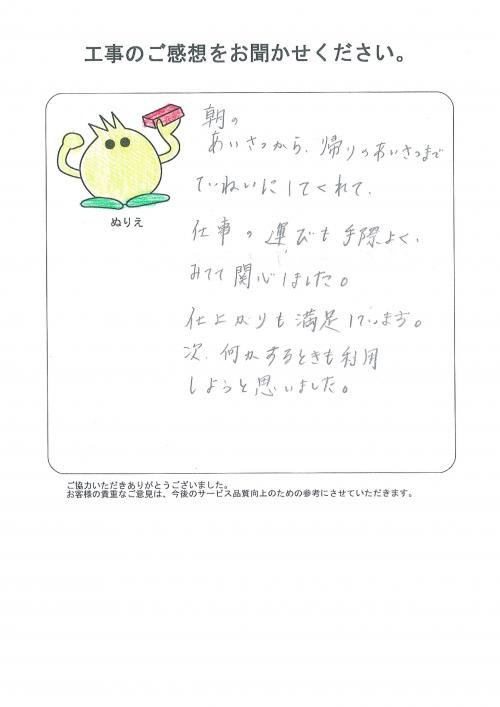 工事のご感想をお聞かせください。
朝の
あいさつから、帰りのあいさつまで
ていねいにしてくれて、
仕事の運びも手際よく、
みてて関心しました。
仕上がりも満足しています。
次、何かするときも利用
しようと思いました。
ぬりえ
ご協力いただきありがとうございました。
お客様の貴重なご意見は、今後のサービス品質向上のための参考にさせていただきます。